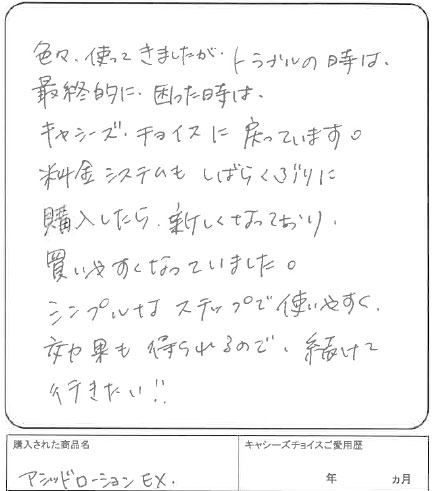 色々、使ってきましたが、トラブルの時は、
最終的に、困った時は、
キャシーズ・チョイスに戻っています。
料金システムも しばらくぶりに
購入したら、新しくなっており、
買いやすくなっていました。
シンプルな ステップで使いやすく、
効果も得られるので、続けて
行きたい!!
購入された商品名
キャシーズチョイスご愛用歴
アシッドローションEX.
年 ヵ月